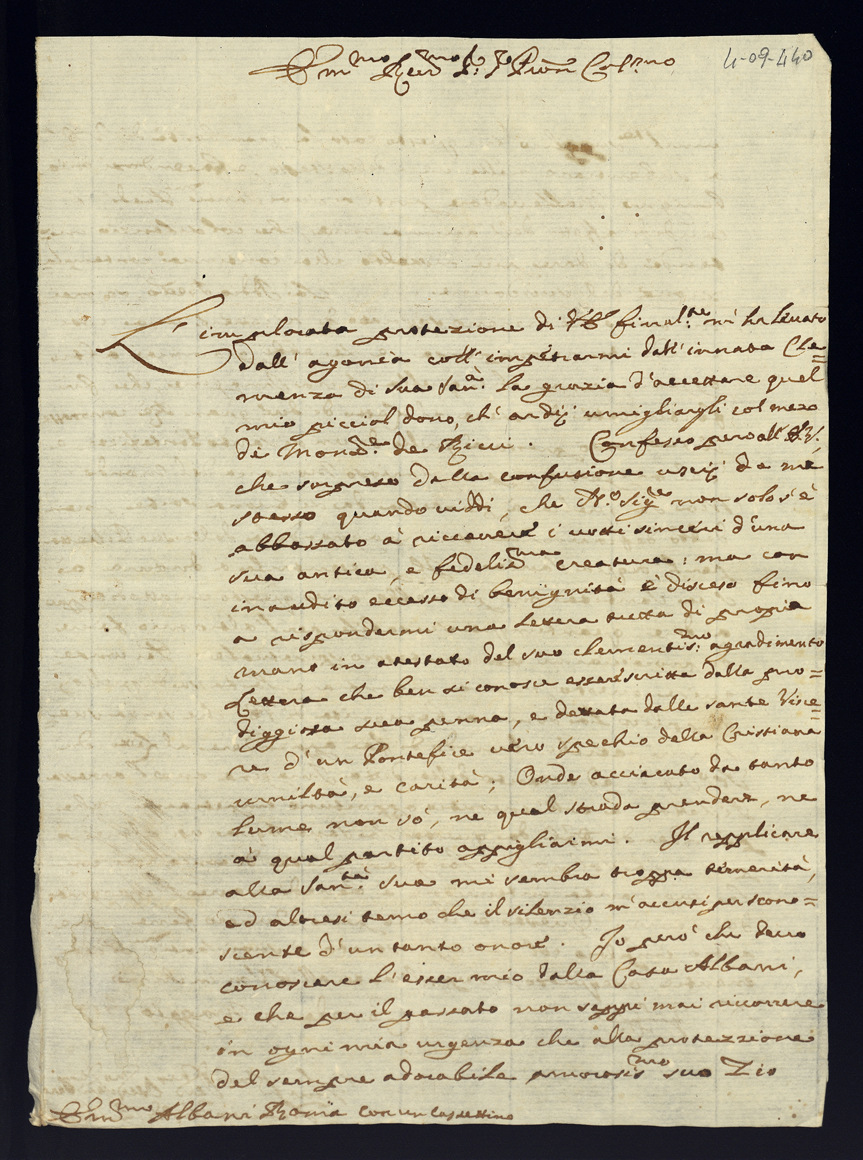 Em.mo Rev.mo Sig.re P.ron Col.mo
4-09-440
L'implorata protezione di V.E. final.te m'ha levato
dall'agonia coll'impetrarmi dall'innata Cle=
menza di Sua San.à la grazia d'accettare quel
mio picciol dono, ch'ardij umigliargli col mezo
di Mons.re de Ricci. Confesso però all'E.V.
che sorpreso dalla confusione uscij da me
stesso quando viddi, che N.o Sig.re non solo s'è
abbassato à riccevere i voti sinceri d'una
sua antica, e fedelis.ma creatura: ma con
inaudito eccesso di benignità è disceso fino
a rispondermi una lettera tutta di propria
mano in atestato del suo clementis.mo agradimento
Lettera che ben si conosce essere scritta dalla pro=
diggiosa sua penna, e dettata dalle sante Visce=
re d'un Pontefice vero specchio della Cristiana
umiltà, e carità; Onde acciecato da tanto
lume non sò, ne qual strada prendere, ne
à qual partito appigliarmi. Il repplicare
alla San.tà Sua mi sembra troppa temerità,
ed altresi temo che il silenzio m'accusi per scono=
scente d'un tanto onore. Io però che devo
conoscere l'esser mio dalla Casa Albani,
e che per il passato non seppi mai ricorrere
in ogni mia urgenza che alla protezzione
del sempre adorabile amorosis.mo suo Zio
Em.mo Albani Roma con un cassettino